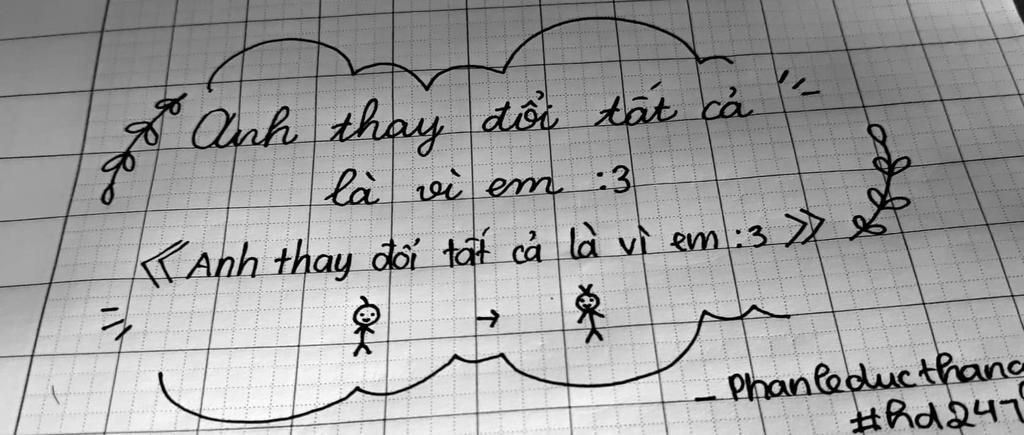 Anh thay đổi tất cả
là vì em :3
《 Anh thay đổi tất cả là vì em :3 》
- Phanleducthang
#hd247